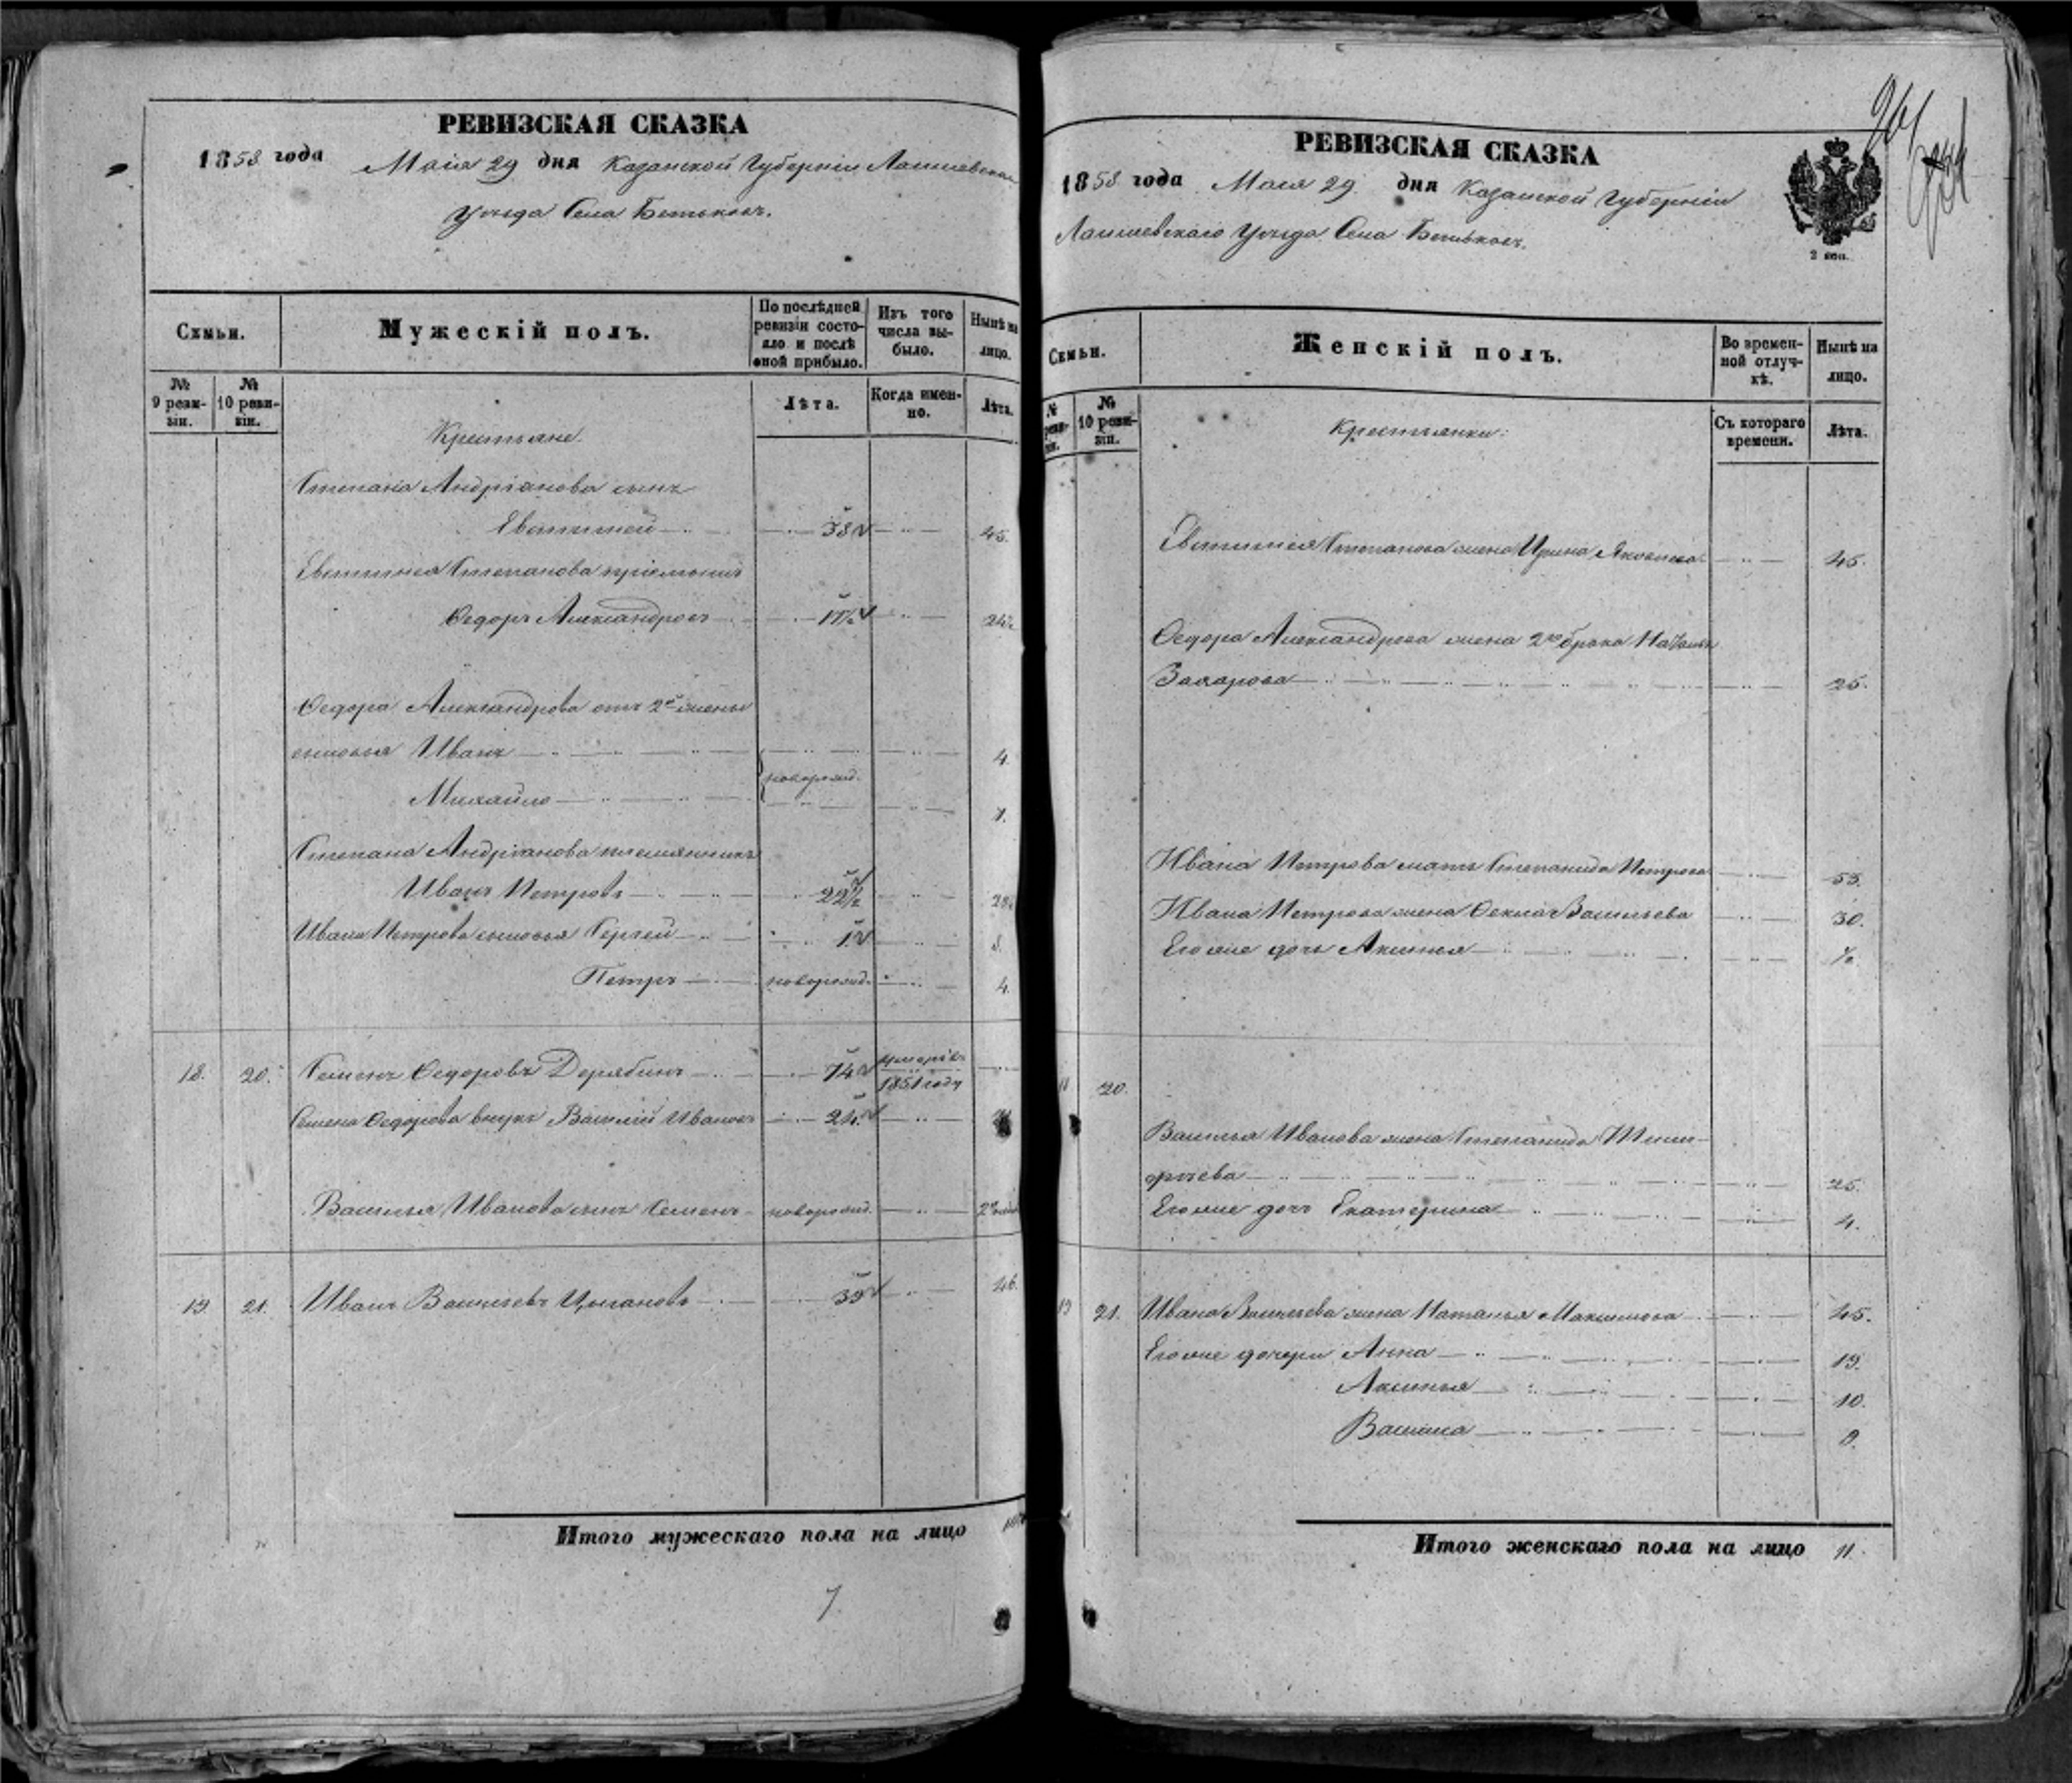 РЕВИЗСКАЯ СКАЗКА
1858 года Маія 29 дня Казанской Губерніи Лаишевскаго
Уѣзда Села Бетьковъ.
Семьи.
Мужескій полъ.
По послѣдней ревизіи состояло и послѣ оной прибыло.
Изъ того числа выбыло.
Нынѣ на лицо.
№ 9 ревизіи.
№ 10 ревизіи.
Лѣта.
Когда именно.
Лѣта.
Крестьяне.
Степана Андріанова сынъ
Евтитей 38 45.
Евтитея Степанова пріемышъ
Ѳедоръ Александровъ 17½ 24½
Ѳедора Александрова отъ 2й жены
сыновья Иванъ 4.
новорожд.
Михайло 1.
Степана Андріанова племянникъ
Иванъ Петровъ 22½
Ивана Петрова сыновья Сергей 1 8.
Петръ новорожд. 4.
18. 20. Семенъ Ѳедоровъ Дерябинъ 74 умеръ въ 1851 году
Семена Ѳедорова внукъ Василій Ивановъ 24.
Василья Иванова сынъ Семенъ новорожд.
19. 21. Иванъ Васильевъ Цыгановъ 39 46.
Итого мужескаго пола на лицо
7.
РЕВИЗСКАЯ СКАЗКА
1858 года Маія 29 дня Казанской Губерніи
Лаишевскаго Уѣзда Села Бетьковъ.
2 коп.
Семьи.
Женскій полъ.
Во временной отлучкѣ.
Нынѣ на лицо.
№ 10 ревизіи.
Съ котораго времени.
Лѣта.
Крестьянки:
Евтитея Степанова жена Ирина Яковлева 45.
Ѳедора Александрова жена 2го брака Наталья
Захарова 25.
Ивана Петрова мать Степанида Петрова 53.
Ивана Петрова жена Ѳекла Васильева 30.
Его же дочь Аксинья
20.
Василья Иванова жена Степанида Тимо-
фѣева 25.
Его же дочь Екатерина 4.
19 21. Ивана Васильева жена Наталья Максимова 45.
Его же дочери Анна 19.
Аксинья 10.
Васиliса 8.
Итого женскаго пола на лицо 11.